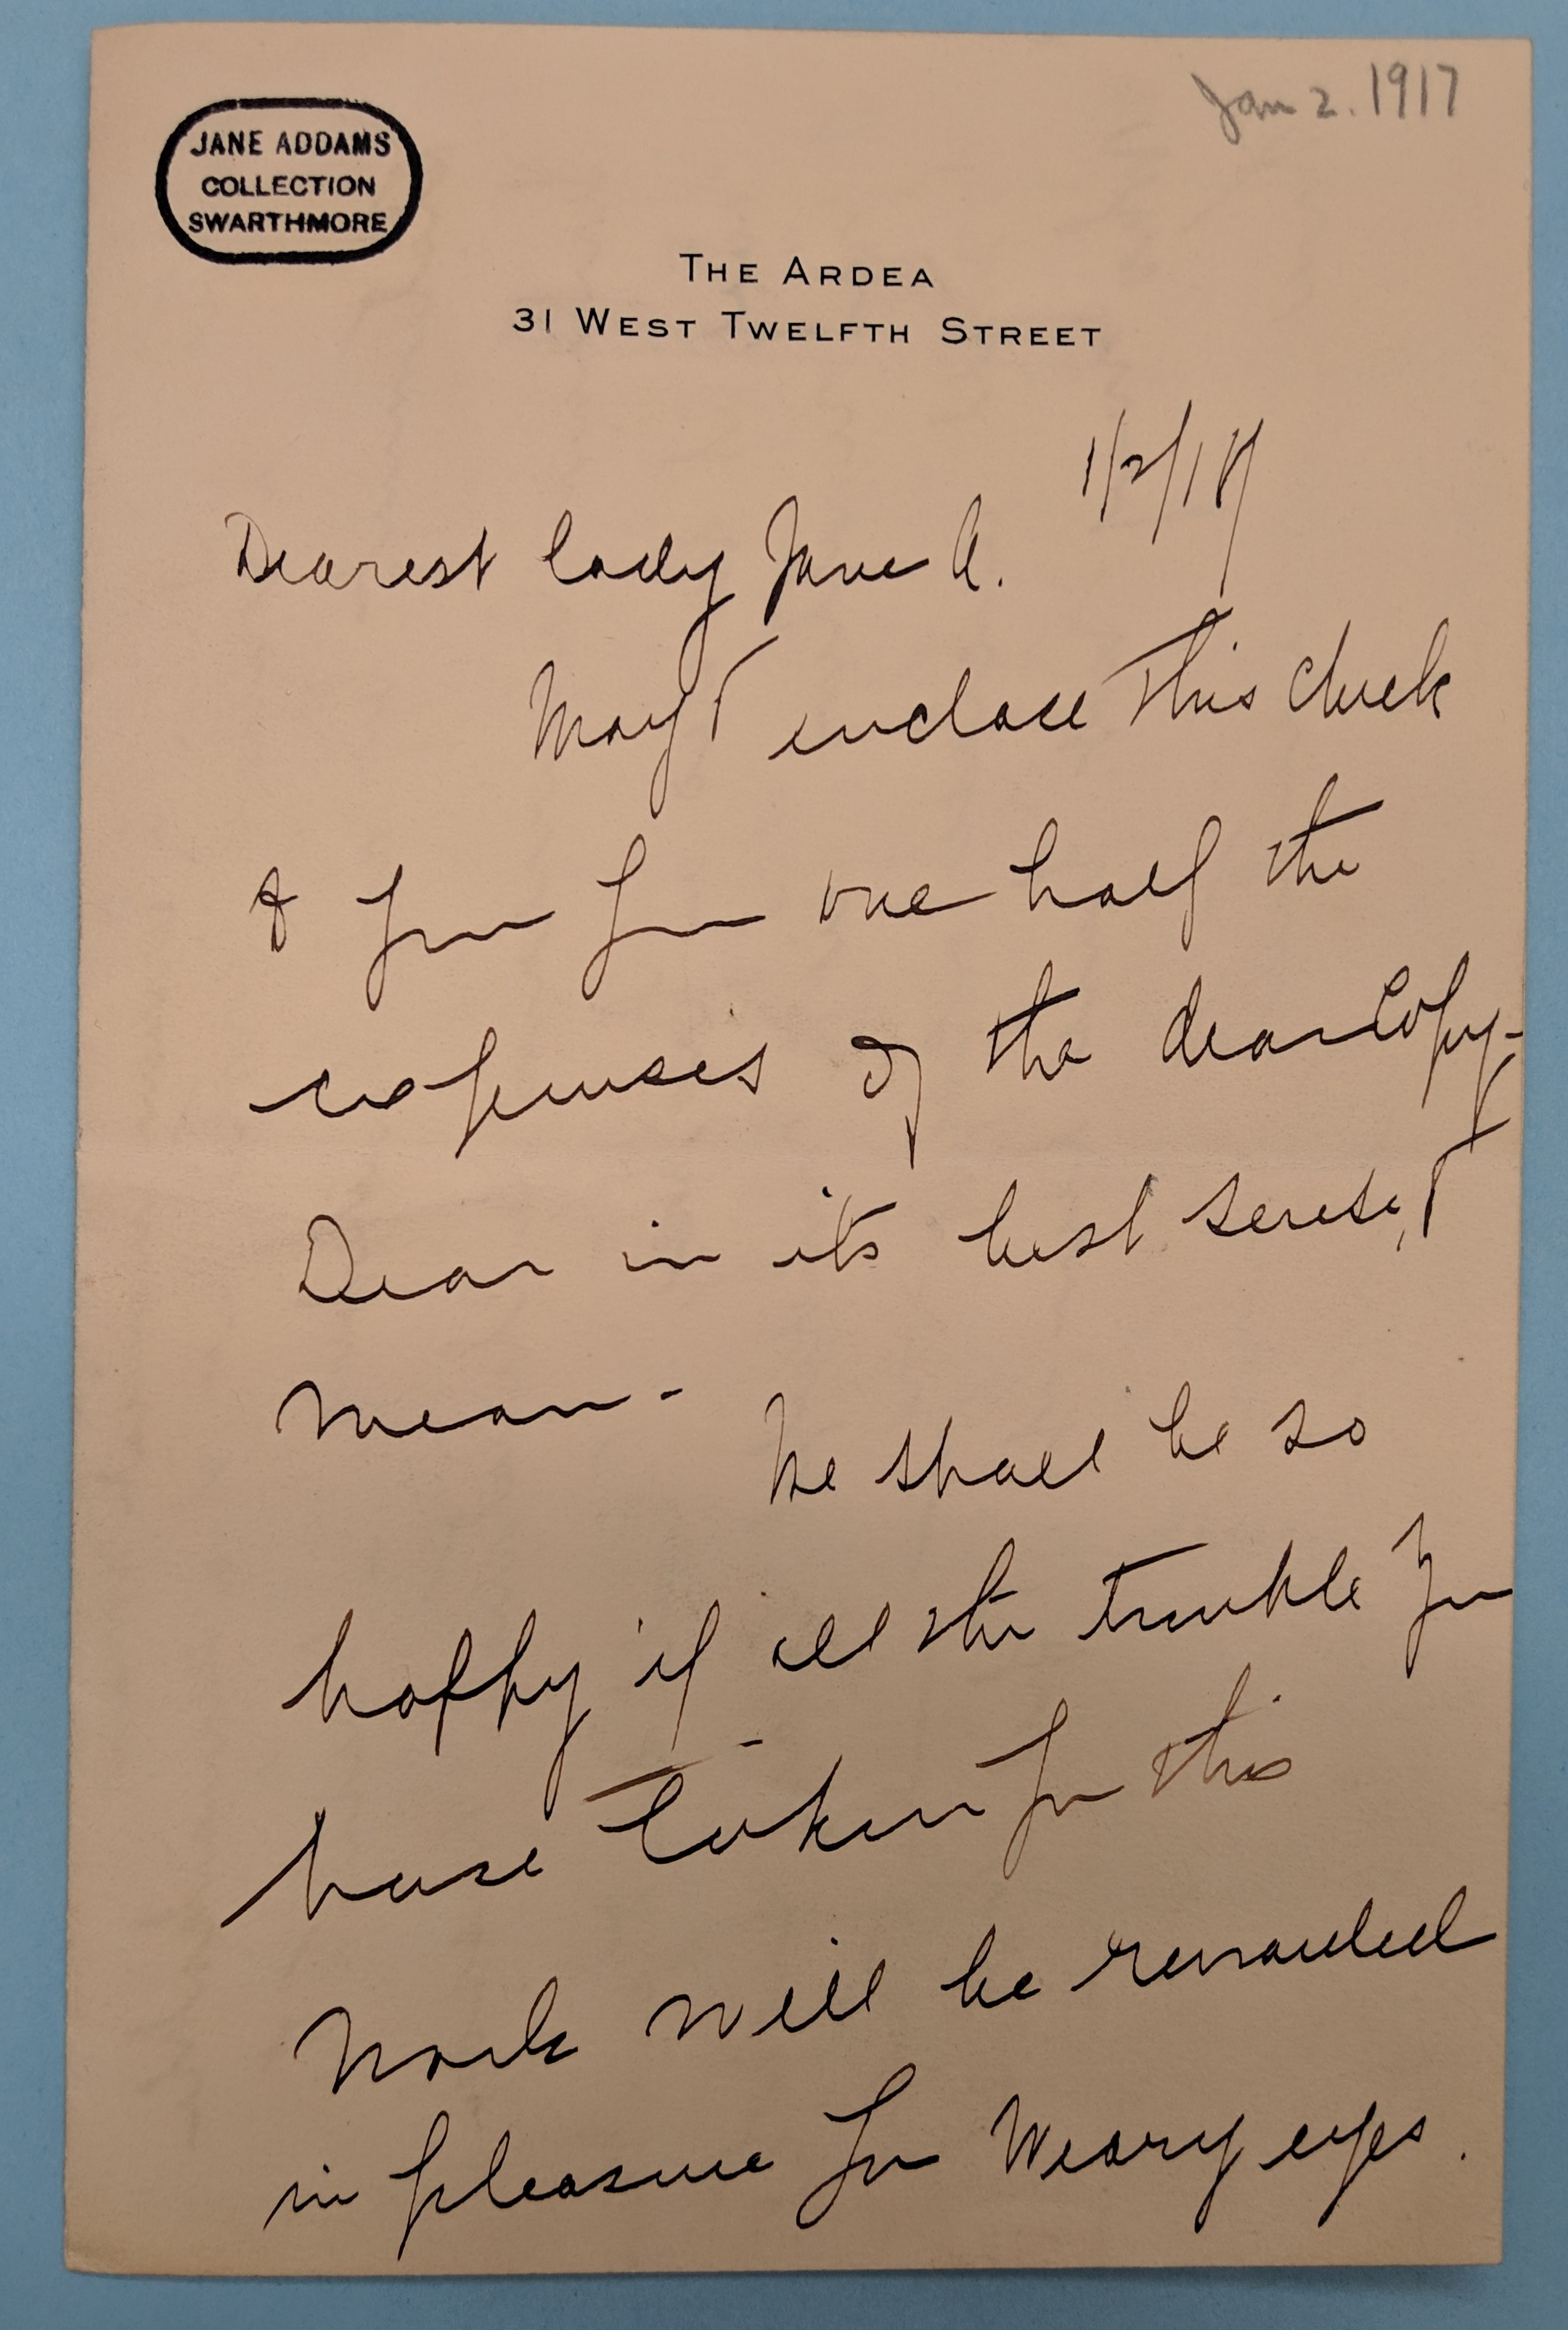 Jan 2. 1917
JANE ADDAMS
COLLECTION
SWARTHMORE
THE ARDEA
31 WEST TWELFTH STREET
1/2/17
Dearest lady Jane A.
May I enclose this check
to you for one half the
expenses of the dear copy-
Dear in its best sense, I
mean- We shall be so
happy if all the trouble you
have taken for this
work will be rewarded
in pleasure for weary eyes.